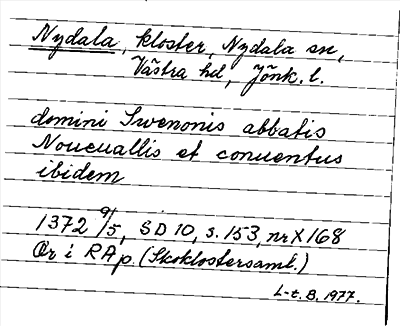 Nydala, kloster, Nydala sn,
Västra hd, Jönk. l.
domini Swenonis abbatis
Noueuallis et conuentus
ibidem
1372 9/5, SD 10, s. 153, nr X 168
Or i RAp (Skoklostersaml.)
L-t. B. 1977.